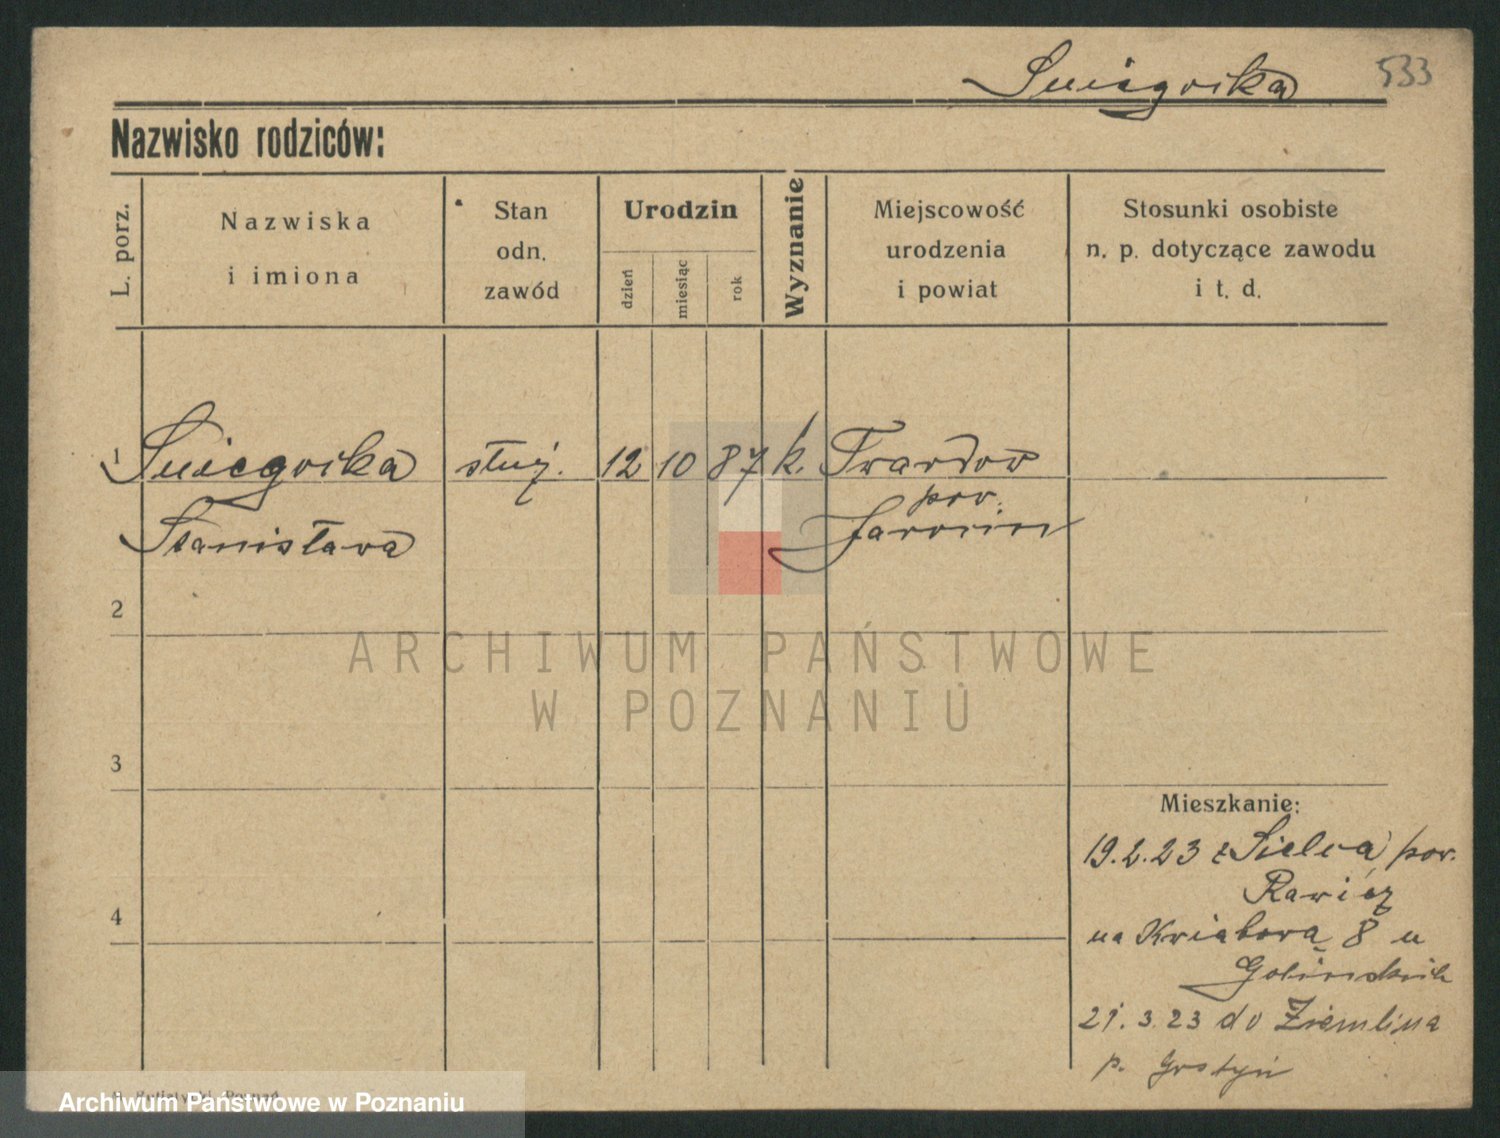 533
Nazwisko rodziców:
L. porz.
Nazwiska
i imiona
Stan
odn.
zawód
Urodzin
dzień
miesiąc
rok
Wyznanie
Miejscowość
urodzenia
i powiat
Stosunki osobiste
n. p. dotyczące zawodu
i t. d.
1
służ. 12 10 87 k. Twardow
pow.
Jarocin
Stanisława
2
3
4
Mieszkanie:
19.2.23 z Sielca pow.
Rawicz
na 8 u
21.3.23 do Ziemlina
p. Gostyń
ARCHIWUM PAŃSTWOWE
W POZNANIU
Archiwum Państwowe w Poznaniu